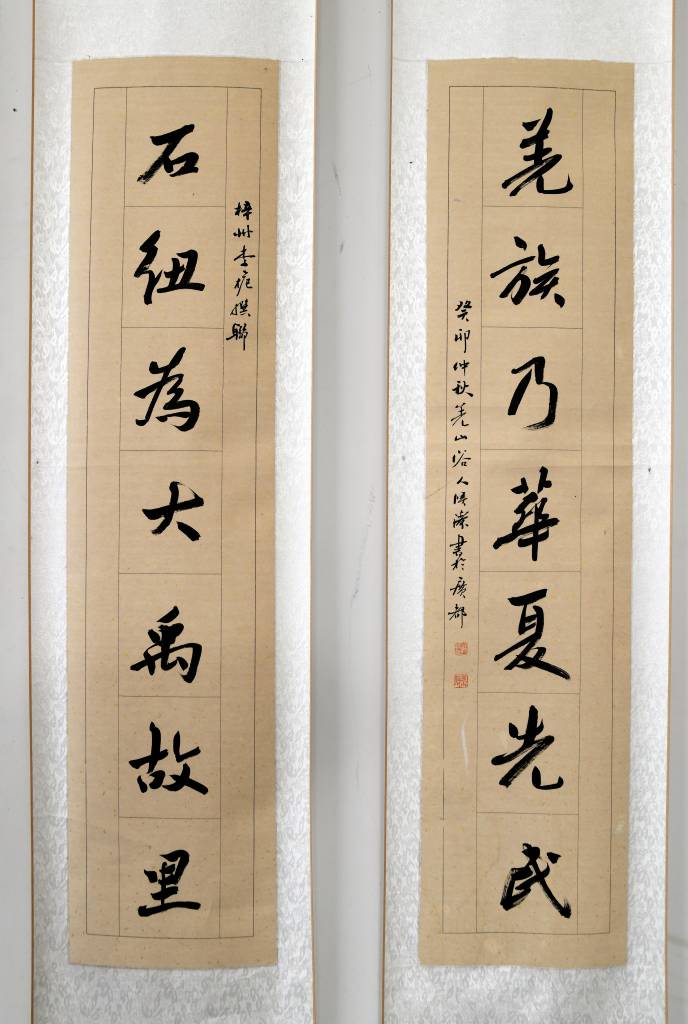 梓州李撰聯
石紐為大禹故里
羌族乃華夏先民
癸卯仲秋羌山谷人書於廣都